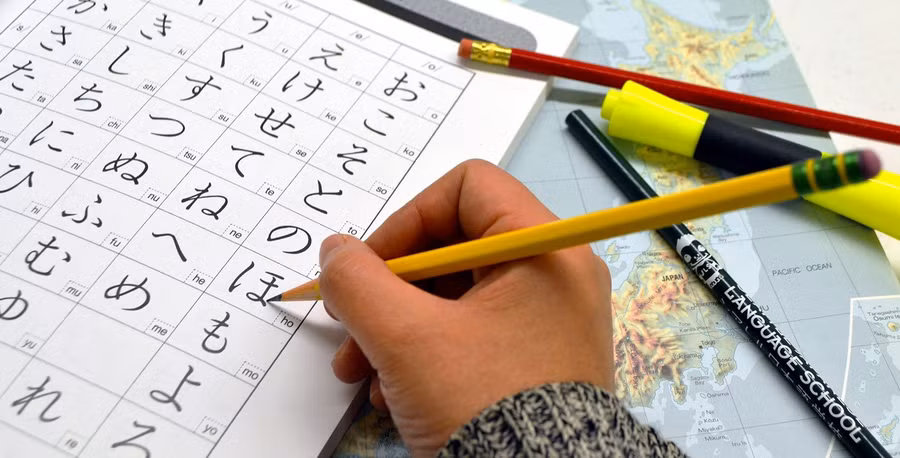 /u/ /e/ /o/
i う u え e お o
か ka き ki く ku け ke こ ko
/s/ さ sa し shi す su せ se そ so
た ta ち chi つ tsu て te と to
na に ni ぬ nu ね ne の
ひ hi ふ fu へ he ほ ho
む mu め me も mo
ゆ yu よ yo
れ re ろ
HOKKAIDO
JAPAN
PACIFIC OCEAN
LANGUAGE SCHOOL